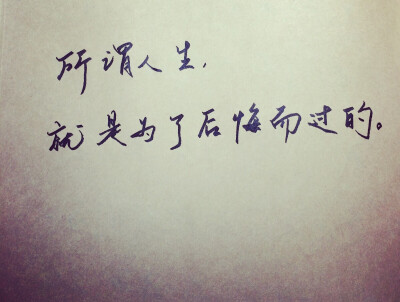 所谓人生，
就是为了后悔而过的。